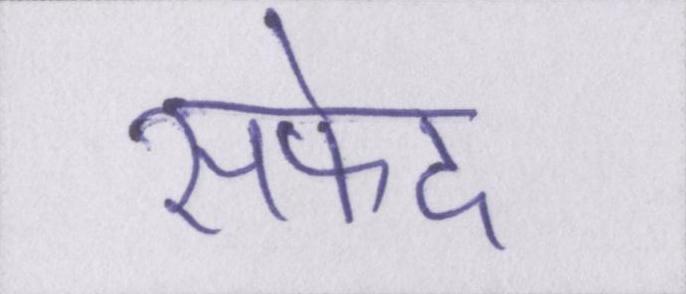 सफेद